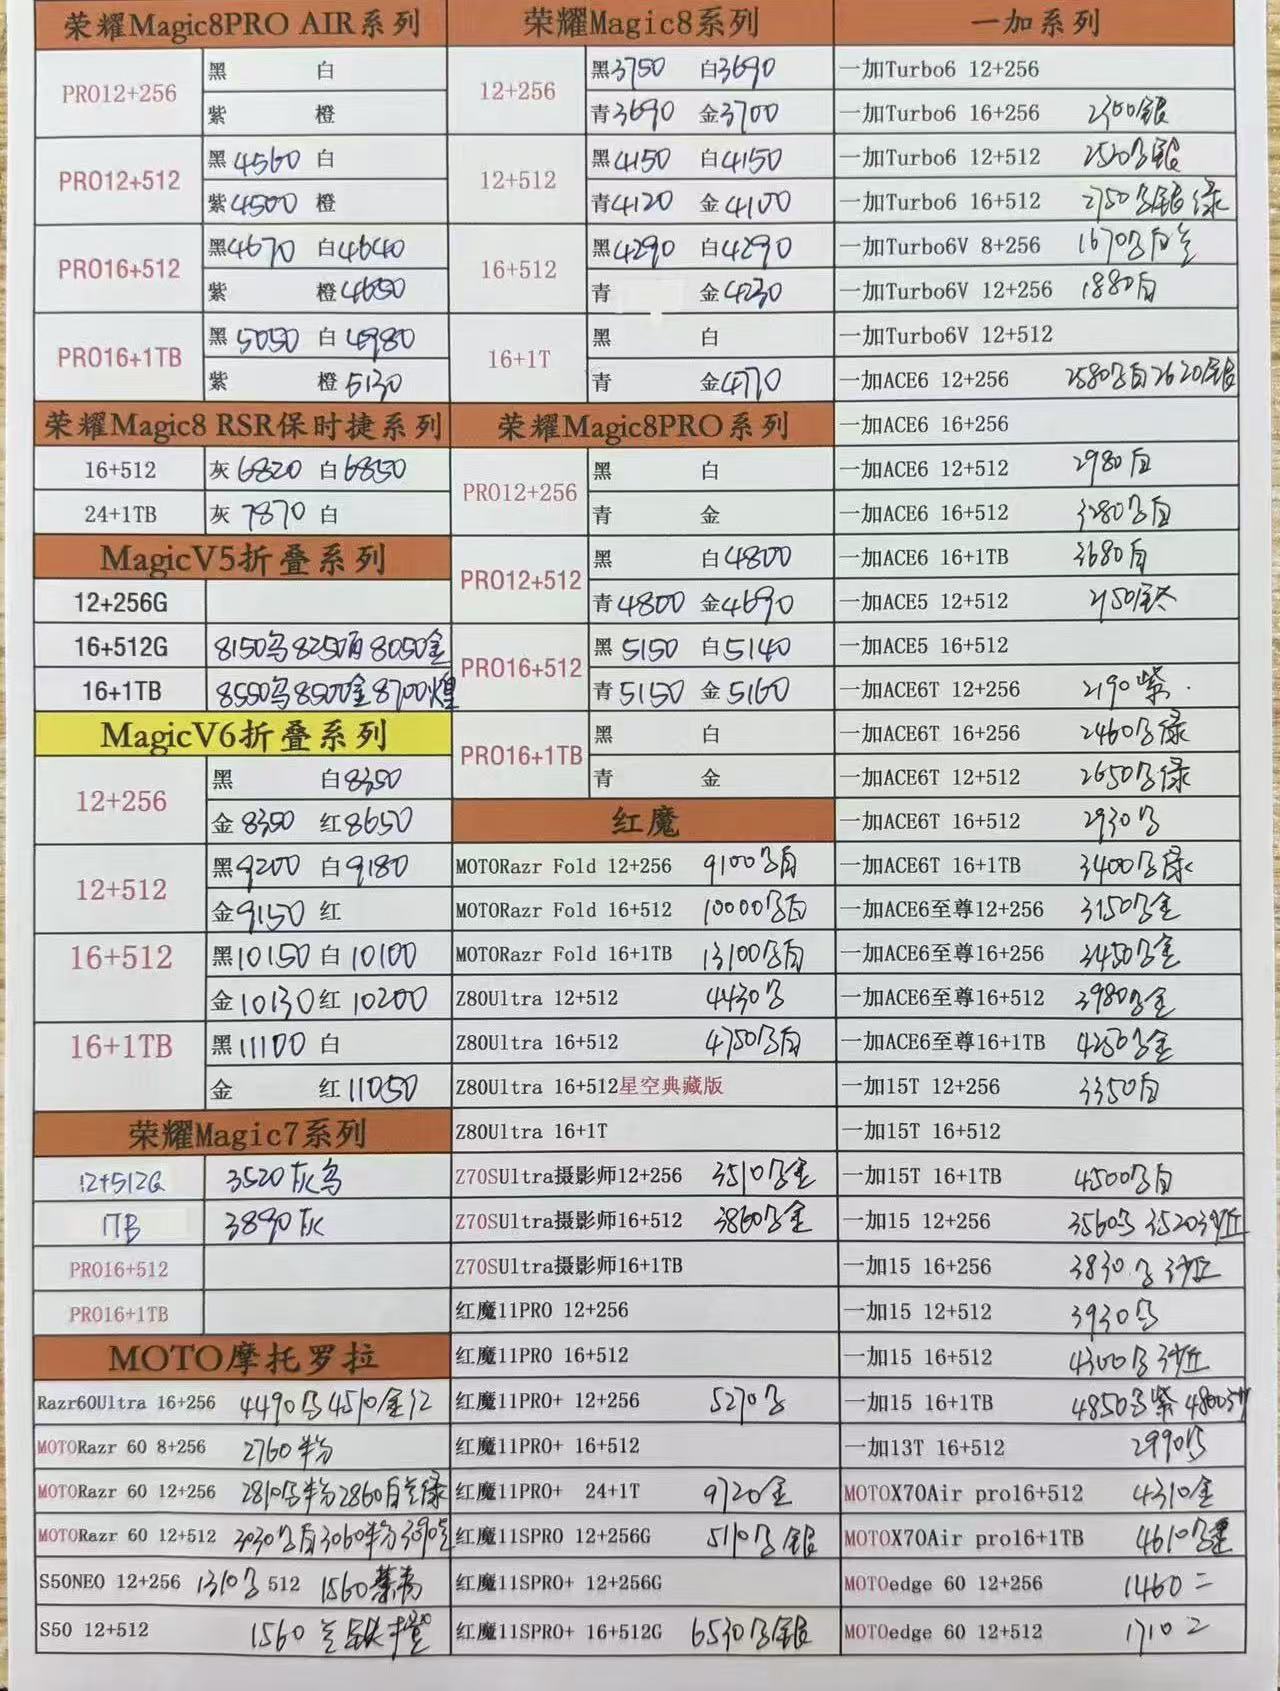 荣耀Magic8PRO AIR系列
PRO12+256
黑 白
紫 橙
PRO12+512
黑4560 白
紫4500 橙
PRO16+512
黑4670 白4640
紫 橙4650
PRO16+1TB
黑5050 白4980
紫 橙5130
荣耀Magic8 RSR保时捷系列
16+512 灰6820 白6850
24+1TB 灰7870 白
MagicV5折叠系列
12+256G
16+512G 8150乌8250白8050金
16+1TB 8550乌8500金8700煌
MagicV6折叠系列
12+256
黑 白8350
金8350 红8650
12+512
黑9200 白9180
金9150 红
16+512
黑10150 白10100
金10130 红10200
16+1TB
黑11100 白
金 红11050
荣耀Magic7系列
12+512G 3520灰乌
1TB 3890灰
PRO16+512
PRO16+1TB
MOTO摩托罗拉
Razr60Ultra 16+256 4490乌4510金红
MOTORazr 60 8+256 2760粉
MOTORazr 60 12+256 2810乌粉2860白兰绿
MOTORazr 60 12+512 3030乌白3060粉3090兰
S50NEO 12+256 1310乌 512 1560
S50 12+512 1560兰
荣耀Magic8系列
12+256
黑3750 白3690
青3690 金3700
12+512
黑4150 白4150
青4120 金4100
16+512
黑4290 白4290
青 金4230
16+1T
黑 白
青 金4770
荣耀Magic8PRO系列
PRO12+256
黑 白
青 金
PRO12+512
黑 白4800
青4800 金4690
PRO16+512
黑5150 白5140
青5150 金5160
PRO16+1TB
黑 白
青 金
红魔
MOTORazr Fold 12+256 9100乌白
MOTORazr Fold 16+512 10000乌白
MOTORazr Fold 16+1TB 13100乌白
Z80Ultra 12+512 4430乌
Z80Ultra 16+512 4750乌白
Z80Ultra 16+512星空典藏版
Z80Ultra 16+1T
Z70SUltra摄影师12+256 3510乌金
Z70SUltra摄影师16+512 3860乌金
Z70SUltra摄影师16+1TB
红魔11PRO 12+256
红魔11PRO 16+512
红魔11PRO+ 12+256 5270乌
红魔11PRO+ 16+512
红魔11PRO+ 24+1T 9720金
红魔11SPRO 12+256G 5110乌银
红魔11SPRO+ 12+256G
红魔11SPRO+ 16+512G 6530乌银
一加系列
一加Turbo6 12+256
一加Turbo6 16+256 2300银
一加Turbo6 12+512 2520乌银
一加Turbo6 16+512 2750乌银绿
一加Turbo6V 8+256 1670乌白兰
一加Turbo6V 12+256 1880白
一加Turbo6V 12+512
一加ACE6 12+256 2580乌白2620银
一加ACE6 16+256
一加ACE6 12+512 2980白
一加ACE6 16+512 3280乌白
一加ACE6 16+1TB 3680白
一加ACE5 12+512 2150钛
一加ACE5 16+512
一加ACE6T 12+256 2190紫
一加ACE6T 16+256 2460乌绿
一加ACE6T 12+512 2650乌绿
一加ACE6T 16+512 2930乌
一加ACE6T 16+1TB 3400乌绿
一加ACE6至尊12+256 3150乌金
一加ACE6至尊16+256 3450乌金
一加ACE6至尊16+512 3980乌金
一加ACE6至尊16+1TB 4250乌金
一加15T 12+256 3350白
一加15T 16+512
一加15T 16+1TB 4500乌白
一加15 12+256 3560乌 3520沙丘
一加15 16+256 3830乌 沙丘
一加15 12+512 3930乌
一加15 16+512 4300乌 沙丘
一加15 16+1TB 4850乌紫 4800沙
一加13T 16+512 2990乌
MOTOX70Air pro16+512 4310金
MOTOX70Air pro16+1TB 4610乌
MOTOedge 60 12+256 1460二
MOTOedge 60 12+512 1710二